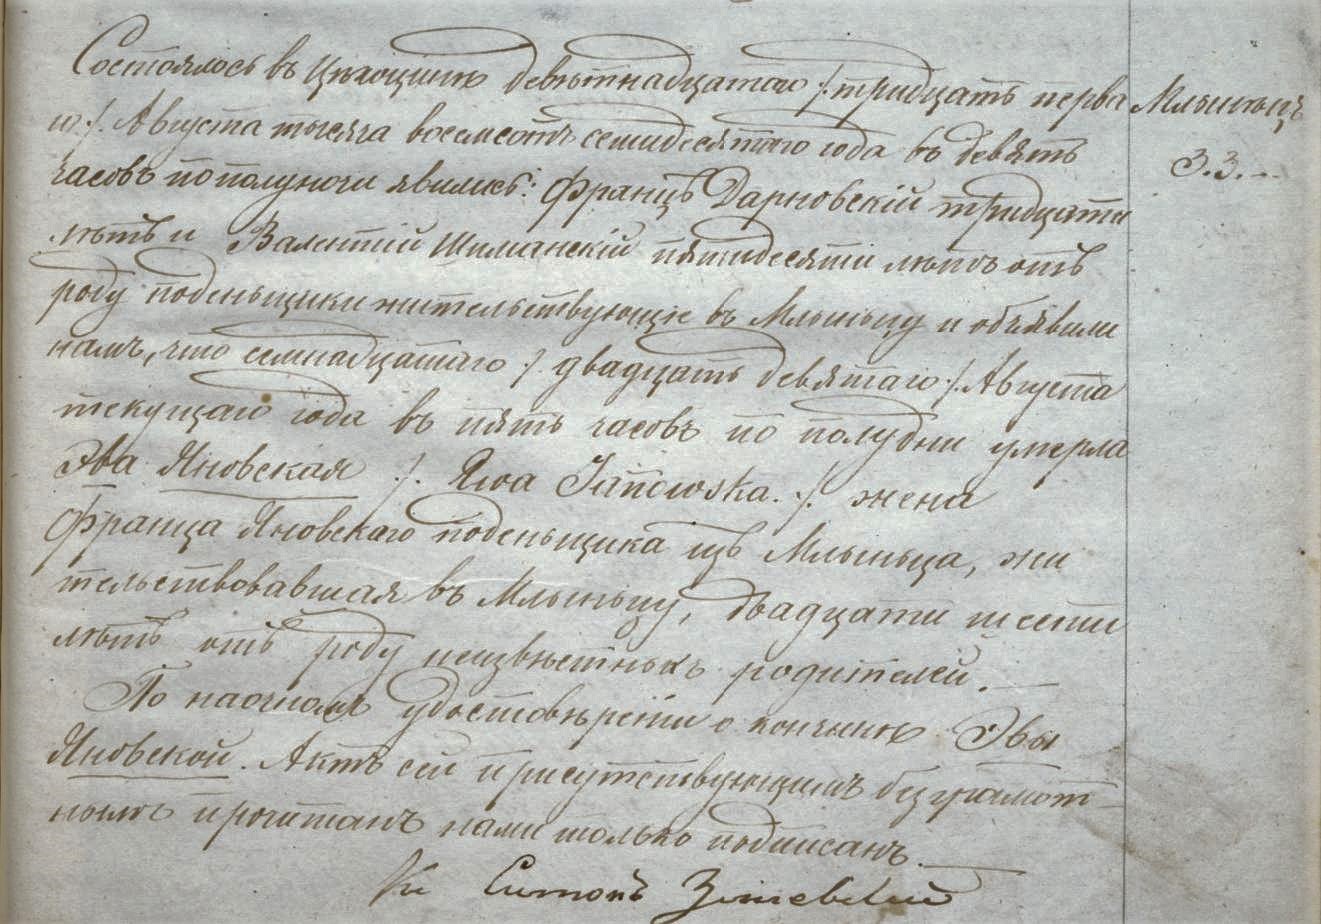 Состоялось въ Цѣхоцинѣ девѣтнадцатаго /:тридцать перва
го:/ Августа тысяча восемсотъ семидесятаго года въ девять
часовъ пополуночи явились: Францъ Дарновскій тридцати
лѣтъ и Валентій Шиманскій пятидесяти лѣтъ отъ
роду поденьщики жительствующіе въ Млыньцу и объявили
намъ, что семнадцатаго /: двадцать девятаго:/ Августа
текущаго года въ пять часовъ по полудни умерла
Эва Яновская /: Ewa Janowska. :/ жена
Франца Яновскаго поденьщика изъ Млыньца, жи
тельствовавшая въ Млыньцу, двадцати шести
лѣтъ отъ роду неизвѣстныхъ родителей.
По наочномъ удостовѣреніи о кончинѣ Эвы
Яновской. Актъ сей присутствующимъ безграмот-
нымъ прочитанъ нами только подписанъ.
Кс Симонъ
Млыньцъ
33.